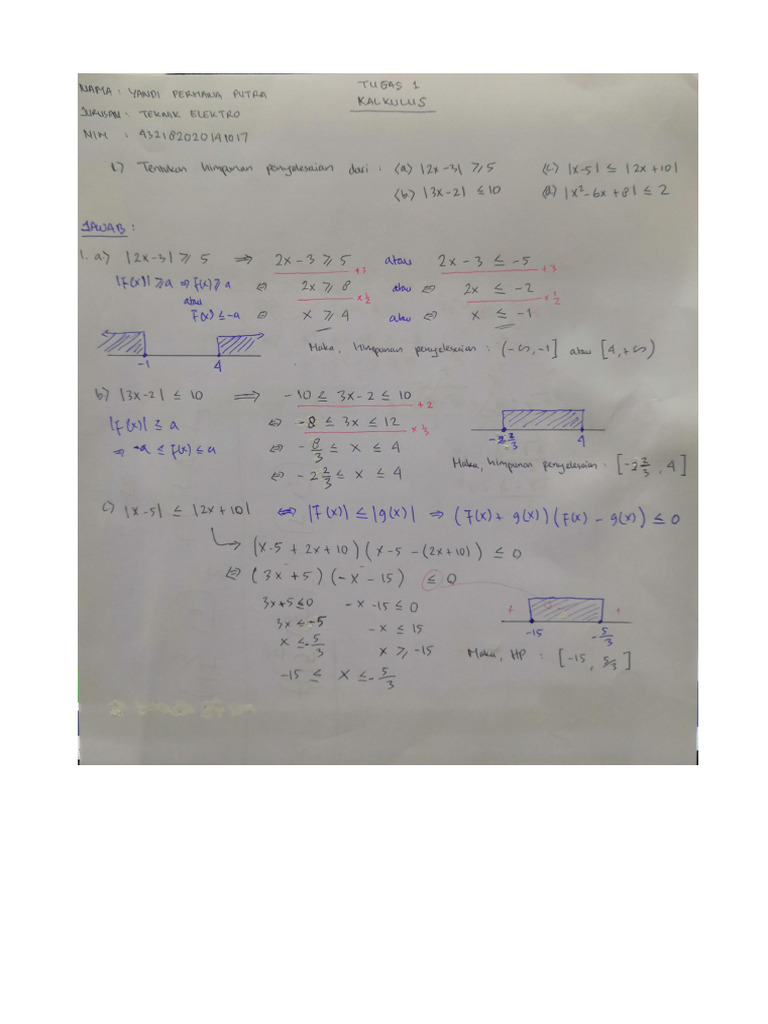 TUGAS 1
KALKULUS
NAMA : YANDI PERMANA PUTRA
JURUSAN : TEKNIK ELEKTRO
NIM : 432182020141017
1.) Tentukan himpunan penyelesaian dari : (a) |2x-3| ≥ 5 (c) |x-5| ≤ |2x+10|
(b) |3x-2| ≤ 10 (d) |x²-6x+8| ≤ 2
JAWAB :
1. a) |2x-3| ≥ 5 ⇒ 2x-3 ≥ 5 atau 2x-3 ≤ -5
+3 +3
|F(x)| ≥ a ⇒ F(x) ≥ a ⇔ 2x ≥ 8 atau ⇔ 2x ≤ -2
atau x ½ x ½
F(x) ≤ -a ⇔ x ≥ 4 atau ⇔ x ≤ -1
-1 4
Maka, himpunan penyelesaian : (-∞,-1] atau [4,+∞)
b) |3x-2| ≤ 10 ⇒ -10 ≤ 3x-2 ≤ 10
+2
|F(x)| ≤ a ⇔ -8 ≤ 3x ≤ 12
x ⅓
⇒ -a ≤ F(x) ≤ a ⇔ -8/3 ≤ x ≤ 4
⇔ -2 2/3 ≤ x ≤ 4
-2 2/3 4
Maka, himpunan penyelesaian : [-2 2/3, 4]
c) |x-5| ≤ |2x+10| ⇔ |F(x)| ≤ |g(x)| ⇒ (F(x)+g(x))(F(x)-g(x)) ≤ 0
→ (x-5+2x+10)(x-5-(2x+10)) ≤ 0
⇔ (3x+5)(-x-15) ≤ 0
3x+5 ≤ 0 -x-15 ≤ 0
3x ≤ -5 -x ≤ 15
x ≤ -5/3 x ≥ -15
-15 ≤ x ≤ -5/3
+ +
-15 -5/3
Maka, HP : [-15, 5/3]